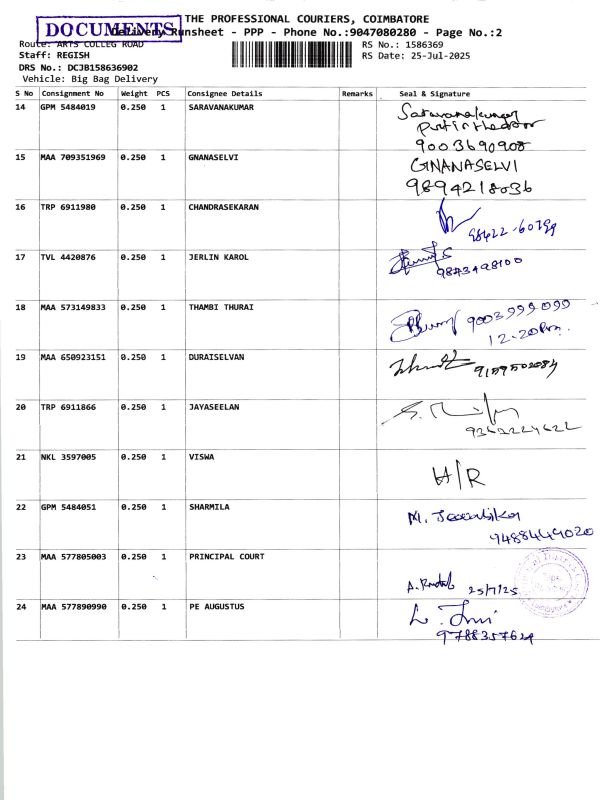 DOCUMENTS
THE PROFESSIONAL COURIERS, COIMBATORE
Delivery Runsheet - PPP - Phone No.:9047080280 - Page No.:2
Route: ARTS COLLEG ROAD
RS No.: 1586369
Staff: REGISH
RS Date: 25-Jul-2025
DRS No.: DCJB158636902
Vehicle: Big Bag Delivery
S No Consignment No Weight PCS Consignee Details Remarks Seal & Signature
14 GPM 5484019 0.250 1 SARAVANAKUMAR Saravanakumar
9003690908
15 MAA 709351969 0.250 1 GNANASELVI GNANASELVI
9894218036
16 TRP 6911980 0.250 1 CHANDRASEKARAN
17 TVL 4420876 0.250 1 JERLIN KAROL
9843498100
18 MAA 573149833 0.250 1 THAMBI THURAI 9003999099
12-20
19 MAA 650923151 0.250 1 DURAISELVAN
20 TRP 6911866 0.250 1 JAYASEELAN
21 NKL 3597005 0.250 1 VISWA H/R
22 GPM 5484051 0.250 1 SHARMILA M.
9488449020
23 MAA 577805003 0.250 1 PRINCIPAL COURT A. 25/7/25
24 MAA 577890990 0.250 1 PE AUGUSTUS
9788357624